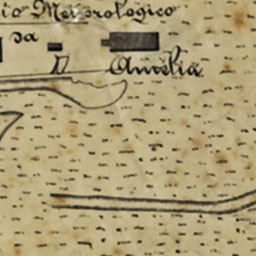 io Meteorologico
sa
Aurelia